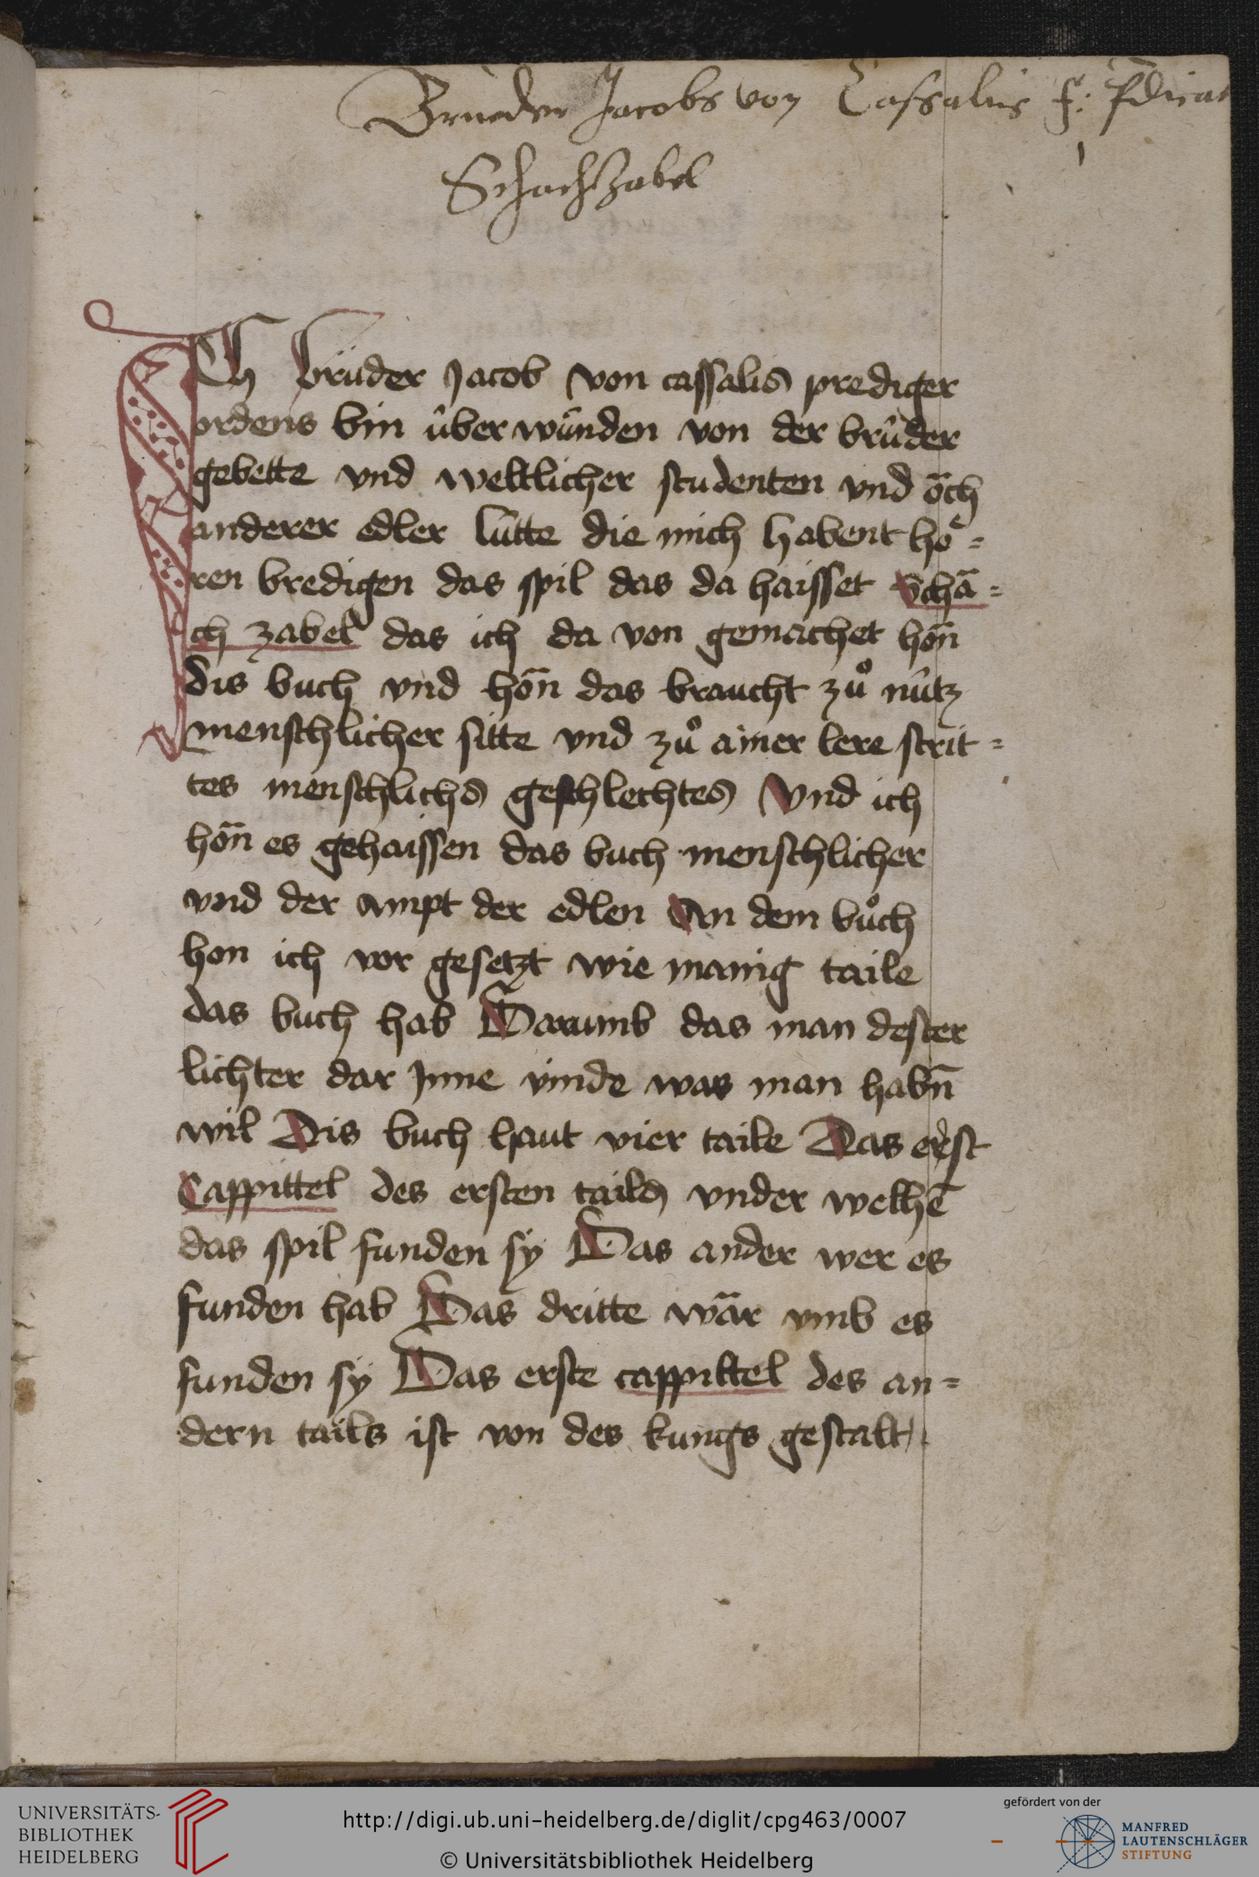 Brueder Jacobs von Cassalis
SchachZabel
1
ICh brüder Jacob von cassalis prediger
ordens bin über wünden von der brüder
gebette vnd weltlicher studenten vnd öch
anderer edler lütte die mich habent hoͤ=
ren bredigen das spil das da haisset Schā=
ch zabel das ich da von gemachet hōn
dis buch vnd hōn das braucht zuͦ nütz
menschlicher sitte vnd zuͦ ainer lere strit=
tes menschlichs geschlechtes Vnd ich
hōn es gehaissen das buch menschlicher
vnd der ampt der edlen An dem buͦch
hon ich vor gesetzt wie manig taile
das buch hab Darumb das man dester
lichter dar Jnne vinde was man habn̄
wil Dis buch haut vier taile Das erst
Cappittel des ersten tails vnder welhē
das spil funden sy Das ander wer es
funden hab Das dritte wār vmb es
funden sÿ Das erste cappittel des an=
dern tails ist von des kungs gestalt
UNIVERSITÄTS-
BIBLIOTHEK
HEIDELBERG
http://digi.ub.uni-heidelberg.de/diglit/cpg463/0007
© Universitätsbibliothek Heidelberg
gefördert von der
MANFRED
LAUTENSCHLÄGER
STIFTUNG